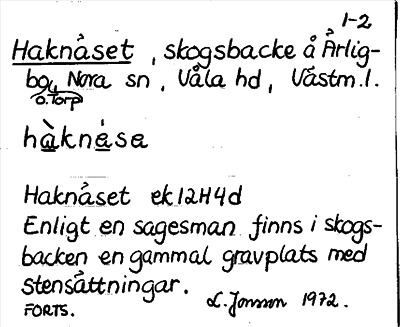 1-2
Haknåset, skogsbacke å Årlig-
bo, Nora sn, Våla hd, Västm.l.
o. Torp
hàknása
Haknåset ek 12H4d
Enligt en sagesman finns i skogs-
backen en gammal gravplats med
stensättningar.
FORTS. L. Jonsson 1972.